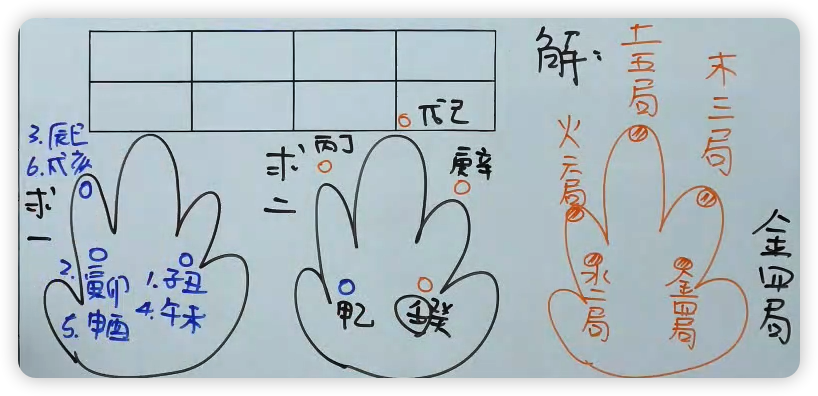 戊己
3.辰巳
6.戌亥
求一
2.寅卯
5.申酉
1.子丑
4.午未
求二
丙丁
庚辛
甲乙
壬癸
解:
土五局
木三局
火六局
水二局
金四局
金四局